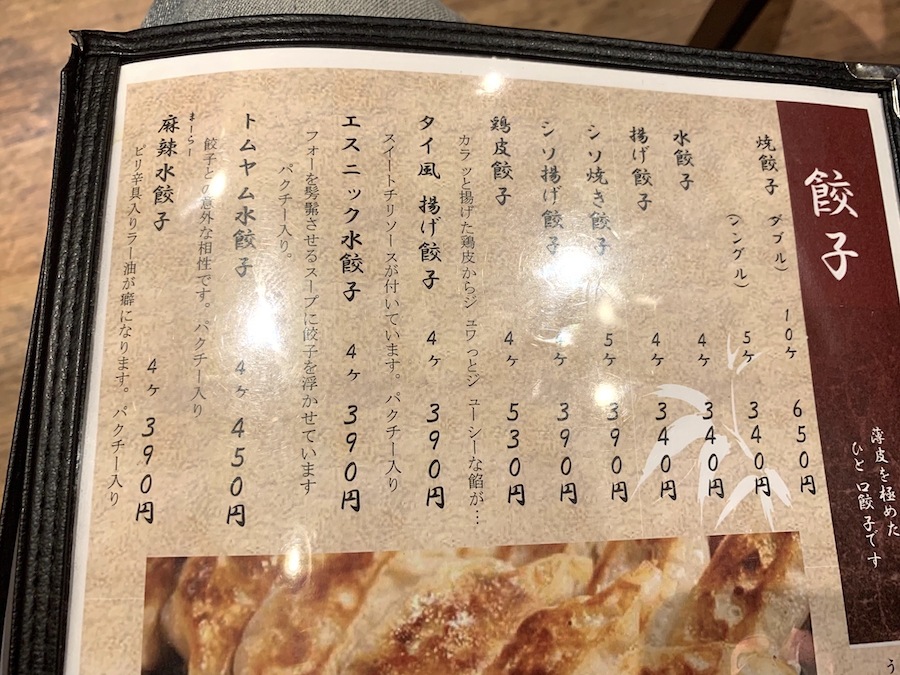 餃子
薄皮を極めた
ひと口餃子です
焼餃子 ダブル) 10ケ 650円
(シングル) 5ケ 340円
水餃子 4ケ 340円
揚げ餃子 4ケ 340円
シソ焼き餃子 5ケ 390円
シソ揚げ餃子 4ケ 390円
鶏皮餃子 4ケ 530円
カラッと揚げた鶏皮からジュワっとジューシーな餡が…
タイ風 揚げ餃子 4ケ 390円
スイートチリソースが付いています。パクチー入り
エスニック水餃子 4ケ 390円
フォーを髣髴させるスープに餃子を浮かせています
パクチー入り。
トムヤム水餃子 4ケ 450円
餃子との意外な相性です。パクチー入り
まーらー
麻辣水餃子 4ケ 390円
ピリ辛具入りラー油が癖になります。パクチー入り
う